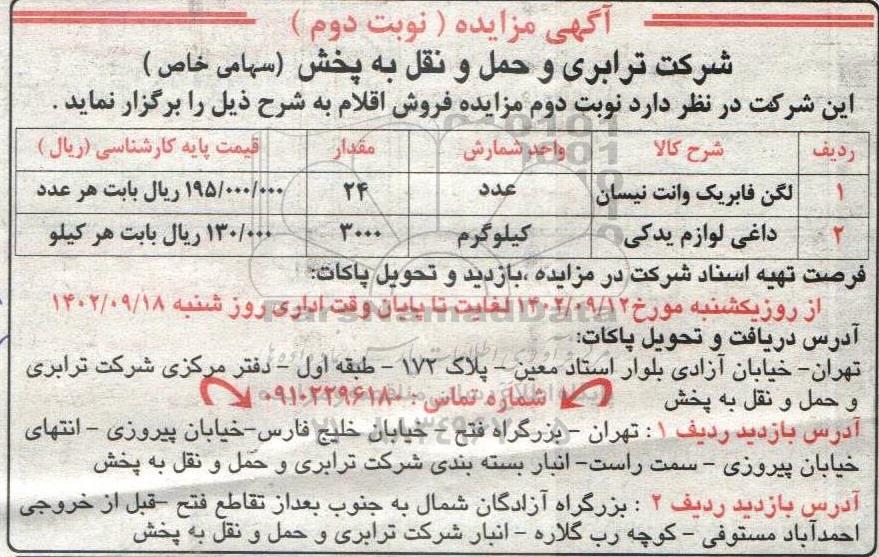 آگهی مزایده ( نوبت دوم )
شرکت ترابری و حمل و نقل به پخش (سهامی خاص )
این شرکت در نظر دارد نوبت دوم مزایده فروش اقلام به شرح ذیل را برگزار نماید .
ردیف شرح کالا واحد شمارش مقدار قیمت پایه کارشناسی (ریال )
۱ لگن فابریک وانت نیسان عدد ۲۴ ۱۹۵/۰۰۰/۰۰۰ ریال بابت هر عدد
۲ داغی لوازم یدکی کیلوگرم ۳۰۰۰ ۱۳۰/۰۰۰ ریال بابت هر کیلو
فرصت تهیه اسناد شرکت در مزایده ،بازدید و تحویل پاکات:
از روزیکشنبه مورخ۱۴۰۲/۰۹/۱۲ لغایت تا پایان وقت اداری روز شنبه ۱۴۰۲/۰۹/۱۸
آدرس دریافت و تحویل پاکات:
تهران- خیابان آزادی بلوار استاد معین - پلاک ۱۷۲ - طبقه اول - دفتر مرکزی شرکت ترابری
و حمل و نقل به پخش شماره تماس : ۰۹۱۰۲۲۹۶۱۸۰
آدرس بازدید ردیف ۱ : تهران - بزرگراه فتح - خیابان خلیج فارس-خیابان پیروزی - انتهای
خیابان پیروزی - سمت راست- انبار بسته بندی شرکت ترابری و حمل و نقل به پخش
آدرس بازدید ردیف ۲ : بزرگراه آزادگان شمال به جنوب بعداز تقاطع فتح -قبل از خروجی
احمدآباد مستوفی - کوچه رب گلاره - انبار شرکت ترابری و حمل و نقل به پخش
ParsNamadData